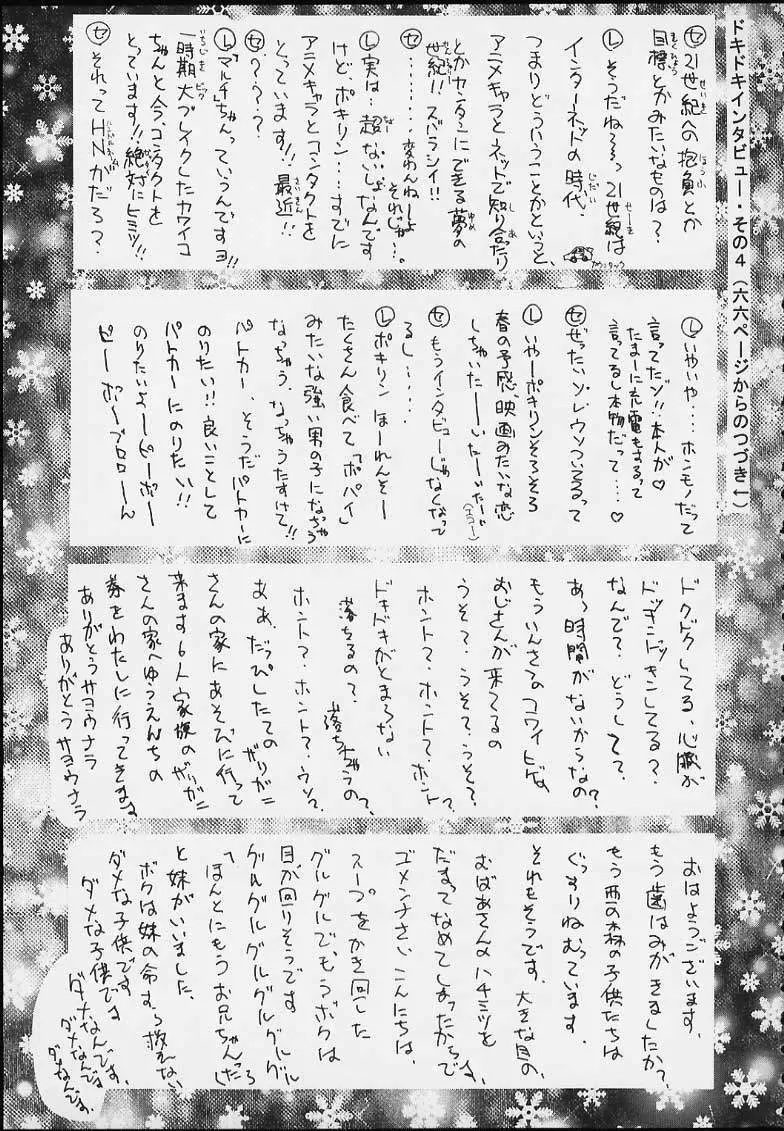 ドキドキインタビュー・その4（六六ページからのつづき↓）
セ 21世紀への抱負とか
目標とかみたいなものは？
レ そうだね〜〜っ 21世紀は
インターネットの時代、
つまりどういうことかというと、
アニメキャラとネットで知り合ったり
とかカンタンにできる夢の
世紀!! ズバラシイ!!
セ ………変わんねーよ
それじゃ…。
レ 実は…超ないしょなんです
けど ポキリン…すでに
アニメキャラとコンタクトを
とっています!! 最近!!
セ ？？？
レ 「マルチ」ちゃんっていうんですヨ!!
一時期大ブレイクしたカワイコ
ちゃんと今、コンタクトを
とっています!! 絶対にヒミツ!!
セ それってHNがだろ？
レ いやいや…ホンモノだって
言ってたゾ!! 本人が♡
たまーに充電もするって
言ってるし本物だって…♡
セ ぜったいソレウソついてるって
レ いやーポキリンそろそろ
春の予感、映画みたいな恋
しちゃいたーーいなーいなーい
（エコー）
セ もうインタビューじゃなくなって
るし……
レ ポキリン ほーれんそー
たくさん食べて「ポパイ」
みたいな強い男の子になっちゃう
なっちゃう、なっちゃうたすけて!!
パトカー、そうだパトカーに
のりたい!! 良いことして
パトカーにのりたい!!
のりたいよーピーポー
ピーポーブロローん
ドクドクしてる、心臓が
ドッキンドッキンしてる？
なんで？どうして？
あっ時間がないからなの？
もういんさつのコワイヒゲの
おじさんが来てるの
うそ？うそ？うそ？
ホント？ホント？ホント？
ドキドキがとまらない
落ちるの？落ちちゃうの？
ホント？ホント？ウソ？
ああ、だっぴしたてのザリガニ
さんの家にあそびに行って
来ます6人家族のザリガニ
さんの家へゆうえんちの
券をわたしに行ってきます
ありがとうサヨウナラ
ありがとうサヨウナラ
おはようございます、
もう歯はみがきましたか？
もう西の森の子供たちは
ぐっすりねむっています、
それもそうです、大きな目の、
おばあさんのハチミツを
だまってなめてしまったからです、
ゴメンナさい、こんにちは、
スープをかき回した
グルグルでもうボクは
目が回りそうです
グルグルグルグルグルグル
「ほんとにもうお兄ちゃんたら」
と妹がいいました、
ボクは妹の命すら救えない
ダメな子供です
ダメな子供です
ダメなんです、
ダメなんです、
ダメなんです、